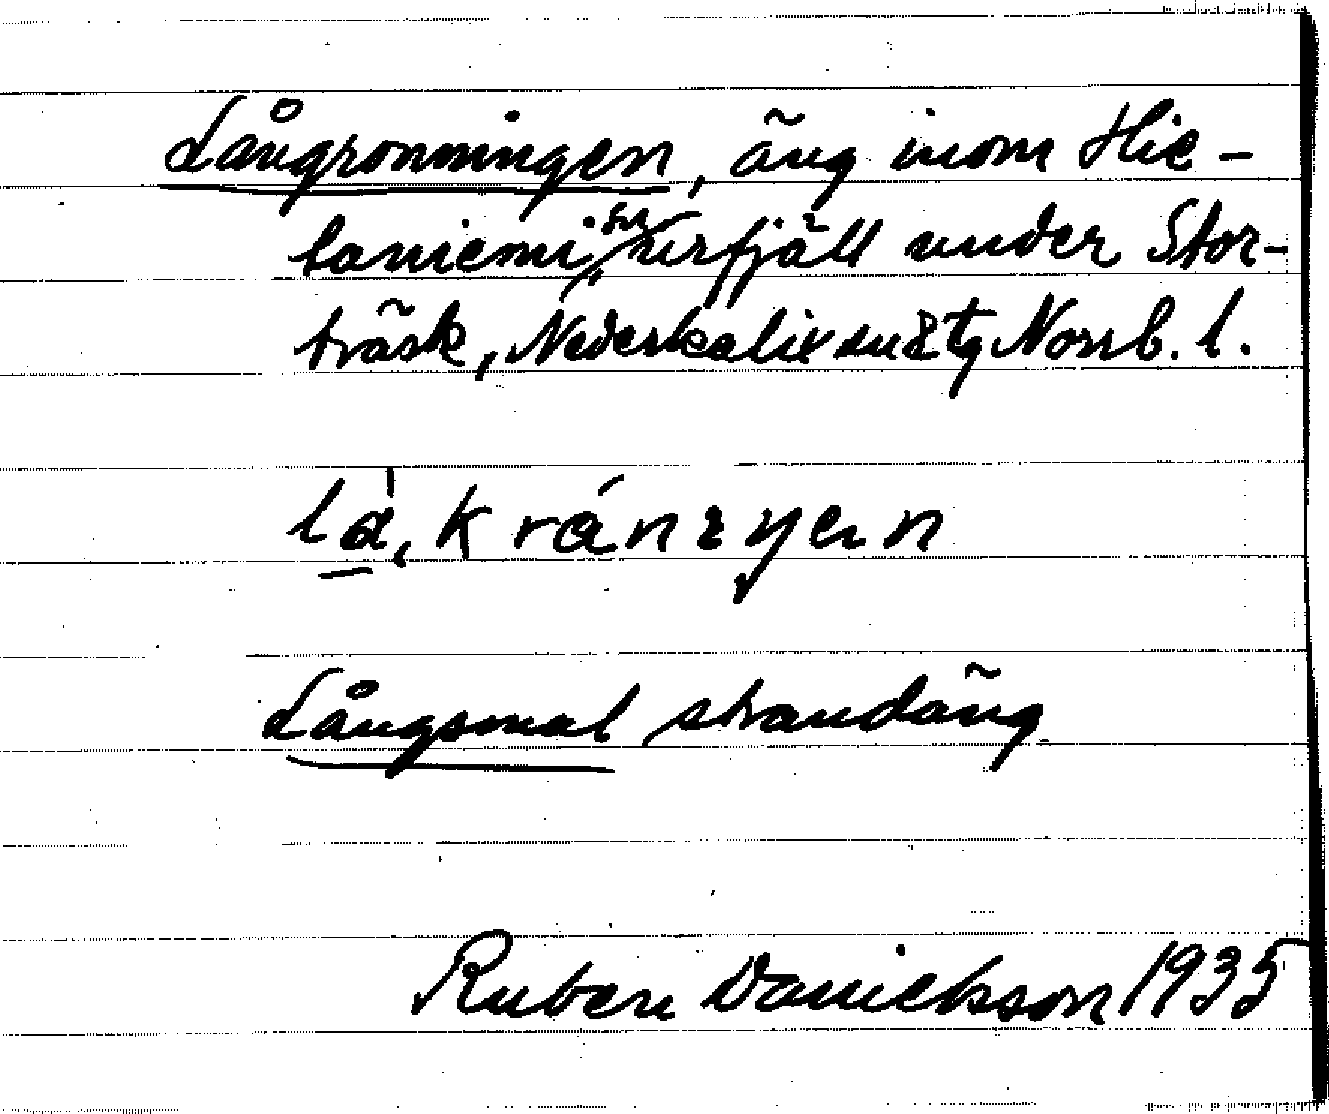 Långronningen, äng inom Hie-
taniemi su, herfjäll under Stor-
träsk, Nederkalix su & tg Norrb. l.
Långsmal strandäng
Ruben Danielsson 1935